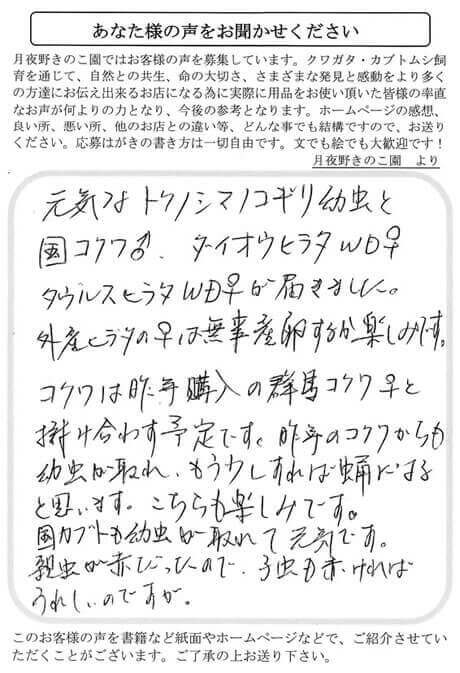 あなた様の声をお聞かせください
月夜野きのこ園ではお客様の声を募集しています。クワガタ・カブトムシ飼
育を通じて、自然との共生、命の大切さ、さまざまな発見と感動をより多く
の方達にお伝え出来るお店になる為に実際に用品をお使い頂いた皆様の率直
なお声が何よりの力となり、今後の参考となります。ホームページの感想、
良い所、悪い所、他のお店との違い等、どんな事でも結構ですので、お送り
ください。応募はがきの書き方は一切自由です。文でも絵でも大歓迎です！
月夜野きのこ園　より
元気なトクノシマノコギリ幼虫と
国コクワ♂、ダイオウヒラタWD♀
タウルスヒラタWD♀が届きました。
外産ヒラタの♀は無事産卵するか楽しみです。
コクワは昨年購入の群馬コクワ♀と
掛け合わす予定です。昨年のコクワからも
幼虫が取れ、もう少しすれば蛹になる
と思います。こちらも楽しみです。
国カブトも幼虫が取れて元気です。
親虫が赤だったので、子虫も赤ければ
うれしいのですが。
このお客様の声を書籍など紙面やホームページなどで、ご紹介させてい
ただくことがございます。ご了承の上お送り下さい。